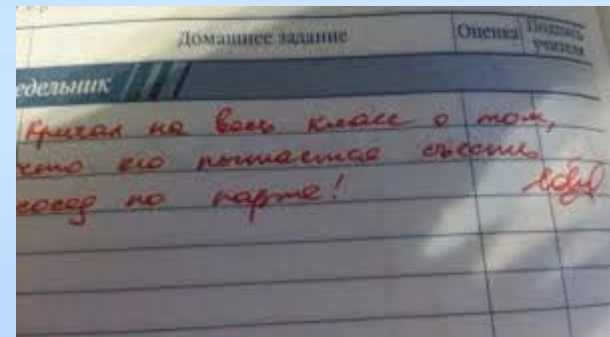 Домашнее задание Оценка Подпись учителя
едельник
Кричал на весь класс о том,
что его пытается съесть
сосед по парте!